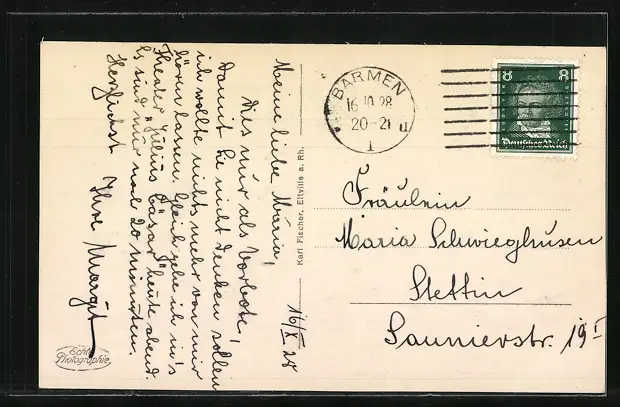 Meine liebe Maria!
Dies nur als Vorbote!
Damit Sie nicht denken sollen
ich wollte nichts mehr von mir
hören lassen. Gleich gehe ich in's
Theater „Julius Cäsar" heute abend.
Es sind nur noch 20 Minuten.
Herzlichst Ihre Margit
16/X 28
Echte
Photographie
Karl Fischer, Eltville a. Rh.
BARMEN
16.10.28
20-21 u
1
8 8
Deutsches Reich
Fräulein
Maria Schwieghusen
Stettin
Saunierstr. 19 I